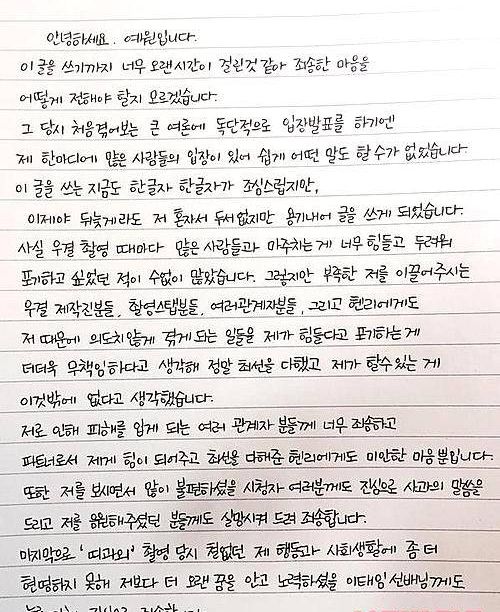 안녕하세요. 예원입니다.
이 글을 쓰기까지 너무 오랜시간이 걸린것 같아 죄송한 마음을
어떻게 전해야 할지 모르겠습니다.
그 당시 처음겪어보는 큰 여론에 독단적으로 입장발표를 하기엔
제 한마디에 많은 사람들의 입장이 있어 쉽게 어떤 말도 할 수가 없었습니다.
이 글을 쓰는 지금도 한글자 한글자가 조심스럽지만,
이제야 뒤늦게라도 저 혼자서 두서없지만 용기내어 글을 쓰게 되었습니다.
사실 우결 촬영 때마다 많은 사람들과 마주치는게 너무 힘들고 두려워
포기하고 싶었던 적이 수없이 많았습니다. 그렇지만 부족한 저를 이끌어주시는
우결 제작진분들, 촬영스탭분들, 여러관계자분들, 그리고 헨리에게도
저 때문에 의도치않게 겪게 되는 일들을 제가 힘들다고 포기하는게
더더욱 무책임하다고 생각해 정말 최선을 다했고 제가 할수있는게
이것밖에 없다고 생각했습니다.
저로 인해 피해를 입게 되는 여러 관계자 분들께 너무 죄송하고
파트너로서 제게 힘이 되어주고 최선을 다해준 헨리에게도 미안한 마음뿐입니다.
또한 저를 보시면서 많이 불편하셨을 시청자 여러분께도 진심으로 사과의 말씀을
드리고 저를 응원해주셨던 분들께도 실망시켜 드려 죄송합니다.
마지막으로 '띠과외' 촬영 당시 철없던 제 행동과 사회생활에 좀 더
현명하지 못해 저보다 더 오랜 꿈을 안고 노력하셨을 이태임 선배님께도